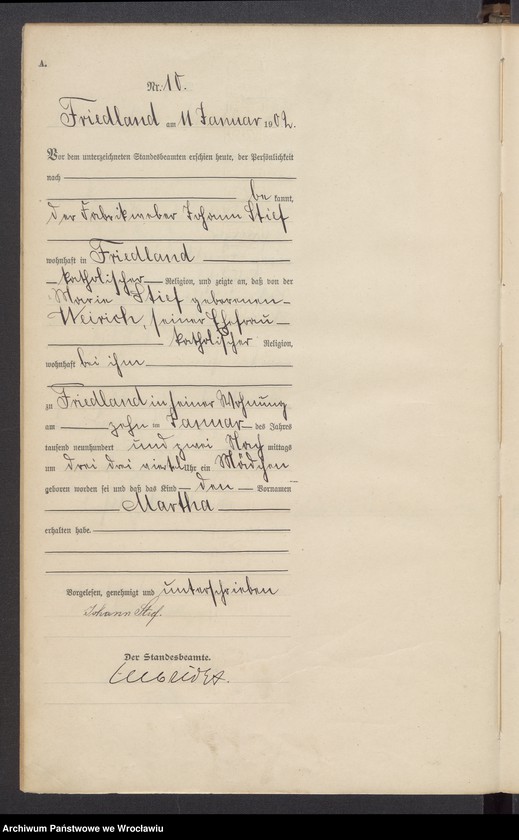 A.
Nr. 10.
Friedland am 11 Januar 1902.
Vor dem unterzeichneten Standesbeamten erschien heute, der Persönlichkeit
nach
be kannt,
der Fabrikweber Johann Stief
wohnhaft in Friedland
katholischer Religion, und zeigte an, daß von der
Maria Stief geborenen
Weirich, seiner Ehefrau
katholischer Religion,
wohnhaft bei ihm
zu Friedland in seiner Wohnung
am zehn ten Januar des Jahres
tausend neunhundert und zwei Nach mittags
um drei drei viertel Uhr ein Mädchen
geboren worden sei und daß das Kind den Vornamen
Martha
erhalten habe.
Vorgelesen, genehmigt und unterschrieben
Johann Stief.
Der Standesbeamte.
Archiwum Państwowe we Wrocławiu